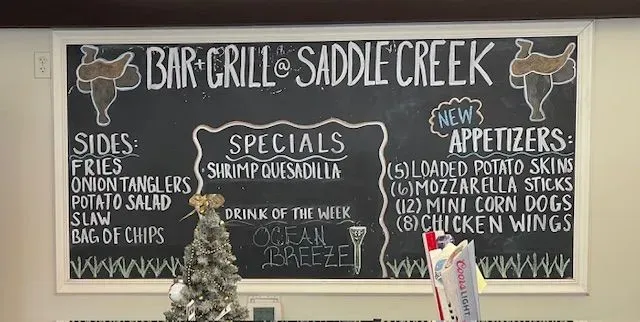 BAR+GRILL@ SADDLE CREEK
SIDES:
FRIES
ONION TANGLERS
POTATO SALAD
SLAW
BAG OF CHIPS
SPECIALS
SHRIMP QUESADILLA
DRINK OF THE WEEK
OCEAN
BREEZE
NEW
APPETIZERS:
(5) LOADED POTATO SKINS
(6) MOZZARELLA STICKS
(12) MINI CORN DOGS
(8) CHICKEN WINGS
Coors LIGHT